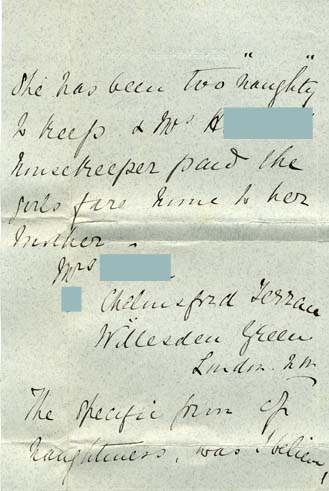 She has been too "naughty"
to keep & Mrs H
housekeeper paid the
girls fare home to her
mother.
Mrs
Chelmsford Terrace
Willesden Green
London. NW
The specific form of
naughtiness, was I believe,